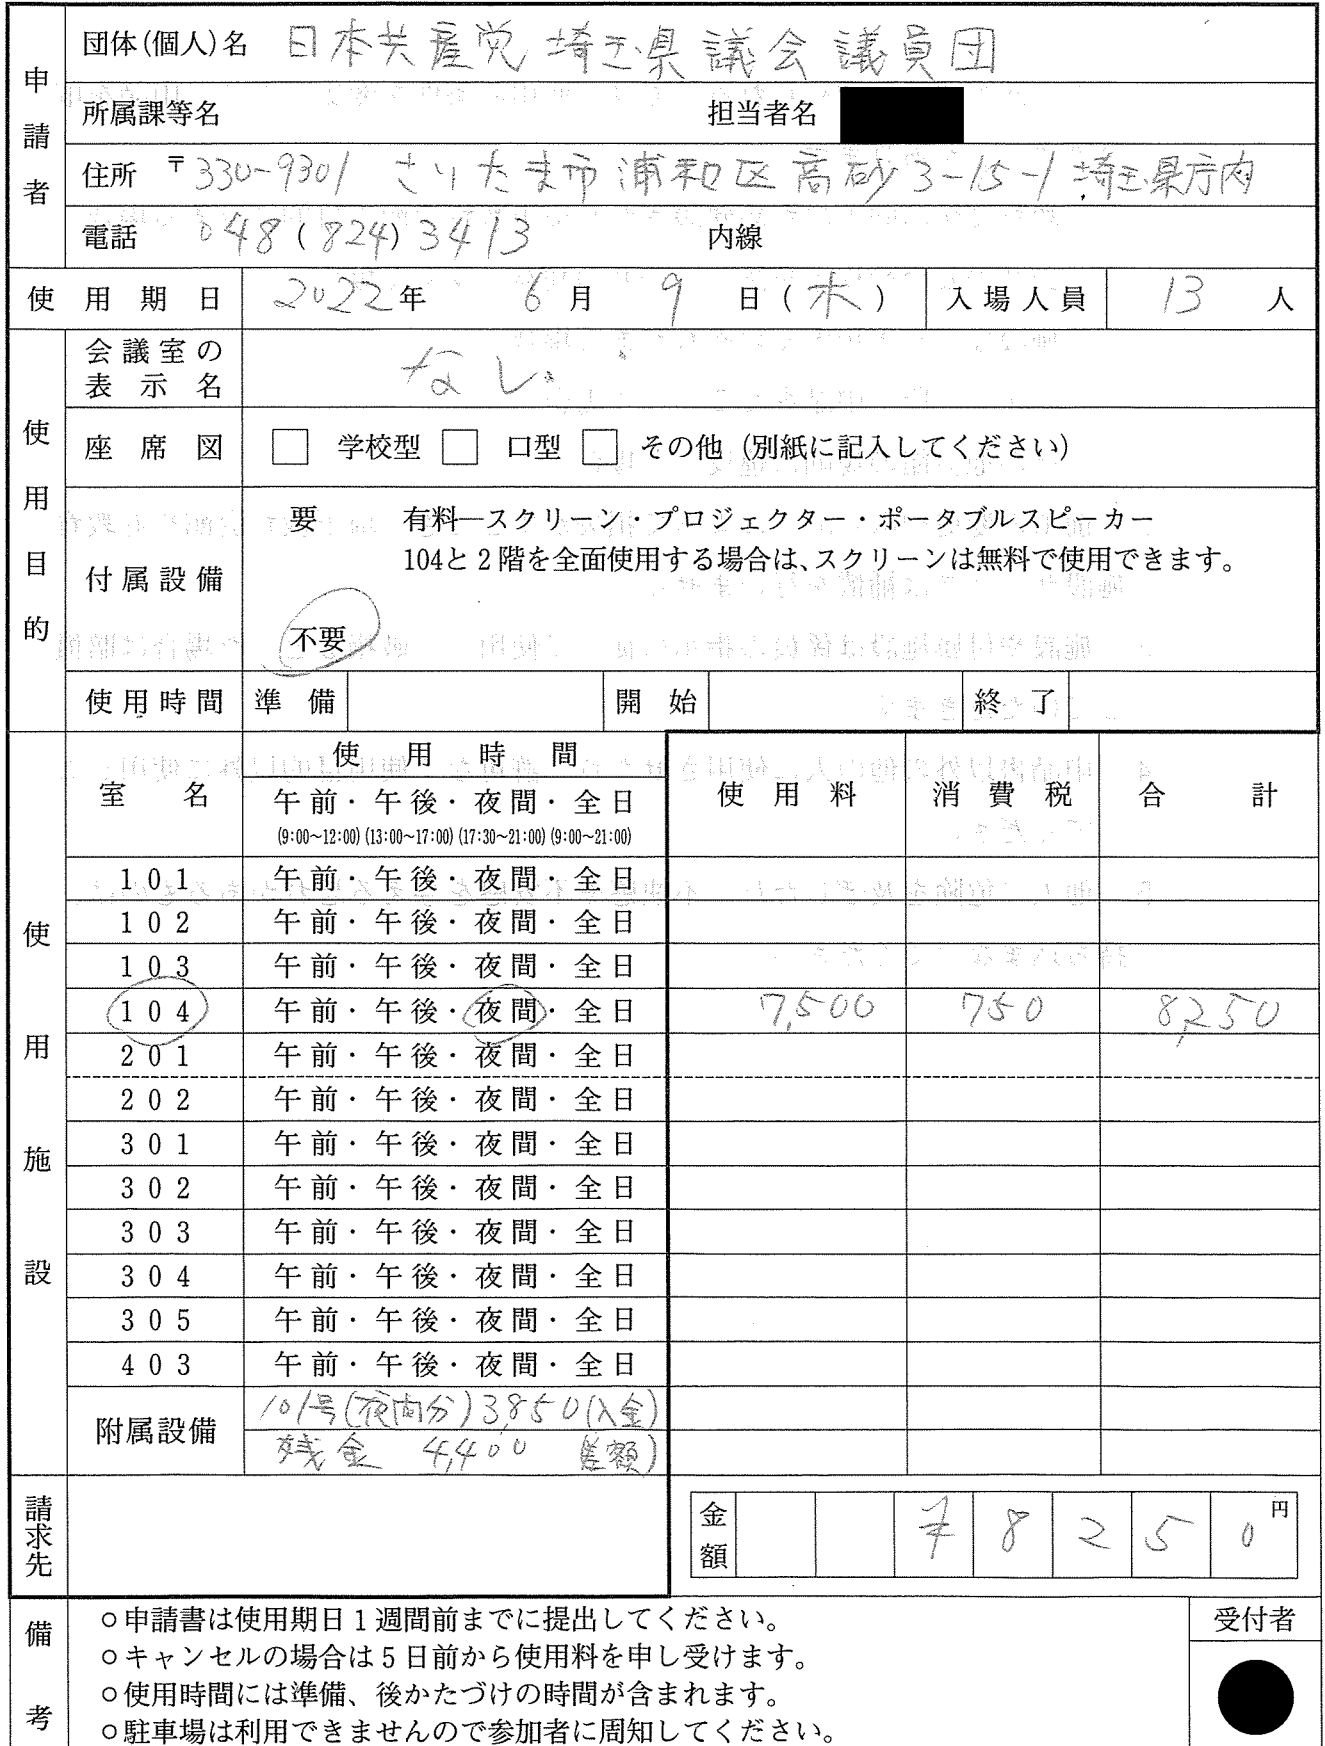 申請者
団体(個人)名 日本共産党埼玉県議会議員団
所属課等名 担当者名
住所 〒330-9301 さいたま市浦和区高砂3-15-1 埼玉県庁内
電話 048(824)3413 内線
使用期日 2022年 6月 9日(木) 入場人員 13人
使用目的
会議室の表示名 なし.
座席図 □ 学校型 □ ロ型 □ その他 (別紙に記入してください)
付属設備 要 有料―スクリーン・プロジェクター・ポータブルスピーカー
104と2階を全面使用する場合は、スクリーンは無料で使用できます。
不要
使用時間 準備 開始 終了
使用施設
室名 使用時間 使用料 消費税 合計
午前・午後・夜間・全日
(9:00~12:00) (13:00~17:00) (17:30~21:00) (9:00~21:00)
101 午前・午後・夜間・全日
102 午前・午後・夜間・全日
103 午前・午後・夜間・全日
104 午前・午後・夜間・全日 7,500 750 8,250
201 午前・午後・夜間・全日
202 午前・午後・夜間・全日
301 午前・午後・夜間・全日
302 午前・午後・夜間・全日
303 午前・午後・夜間・全日
304 午前・午後・夜間・全日
305 午前・午後・夜間・全日
403 午前・午後・夜間・全日
附属設備 101号(夜間分)3,850(入金)
残金 4,400 差額)
請求先 金額 ¥8250円
備考 受付者
○申請書は使用期日1週間前までに提出してください。
○キャンセルの場合は5日前から使用料を申し受けます。
○使用時間には準備、後かたづけの時間が含まれます。
○駐車場は利用できませんので参加者に周知してください。